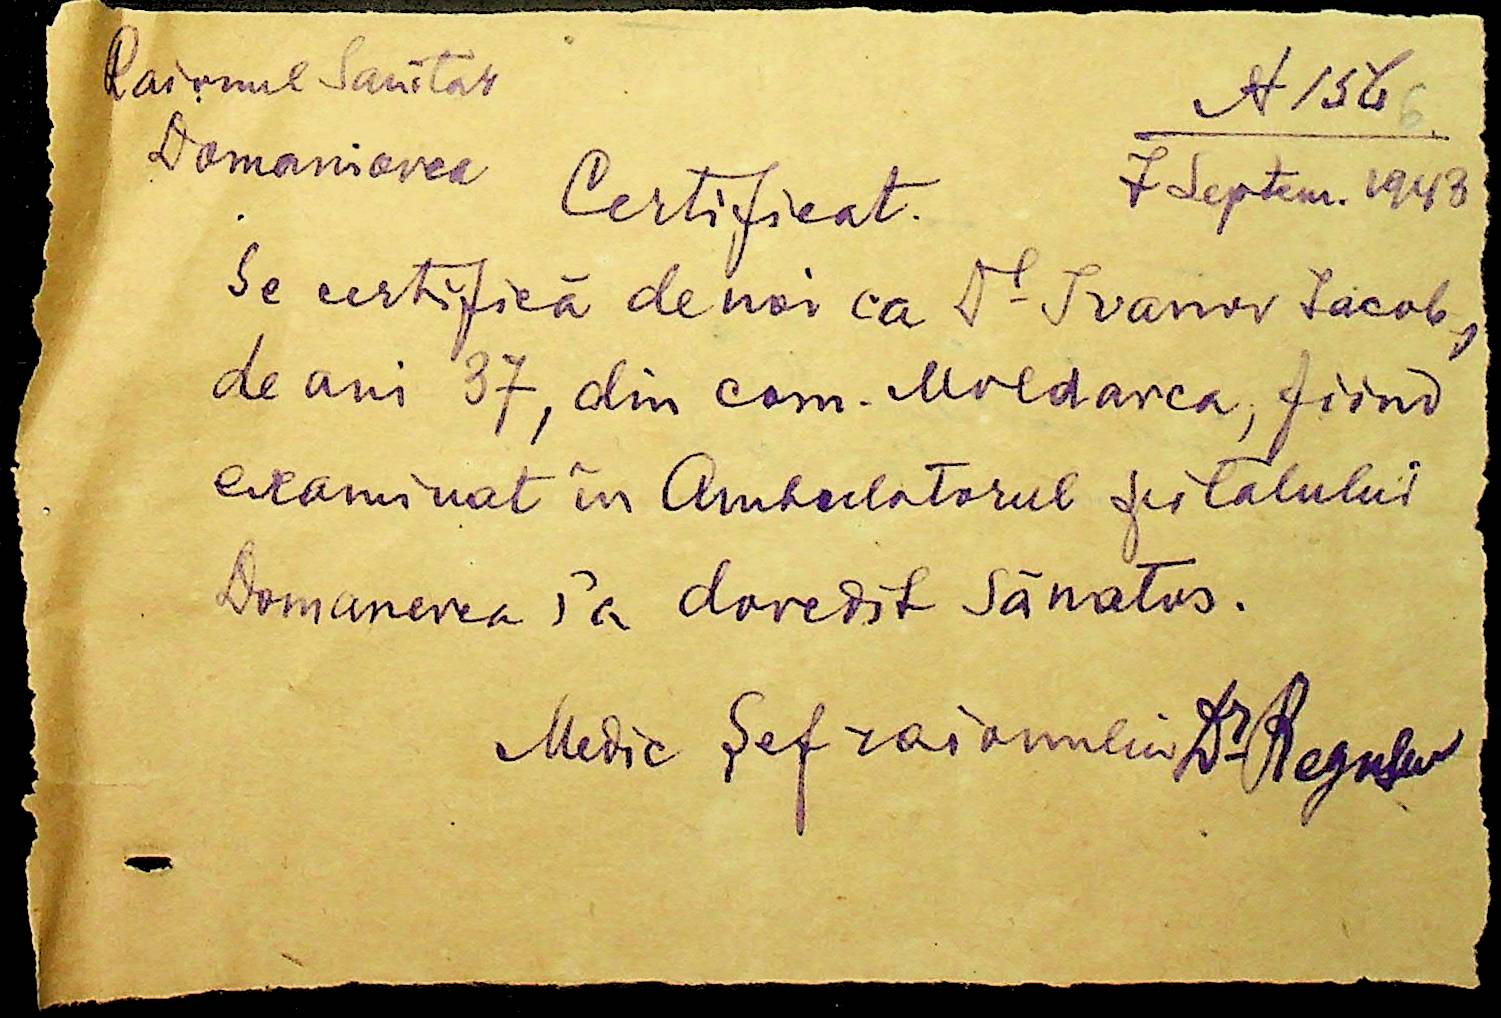 Raionul Sanitar
Domaniovca
7 Septem. 1943
Certificat.
Se certifică de noi ca Dl Ivanov Iacob,
de ani 37, din com. Moldavca, fiind
examinat în Ambulatorul spitalului
Domanevca s'a dovedit Sănatos.
Medic Șef raionului Dr